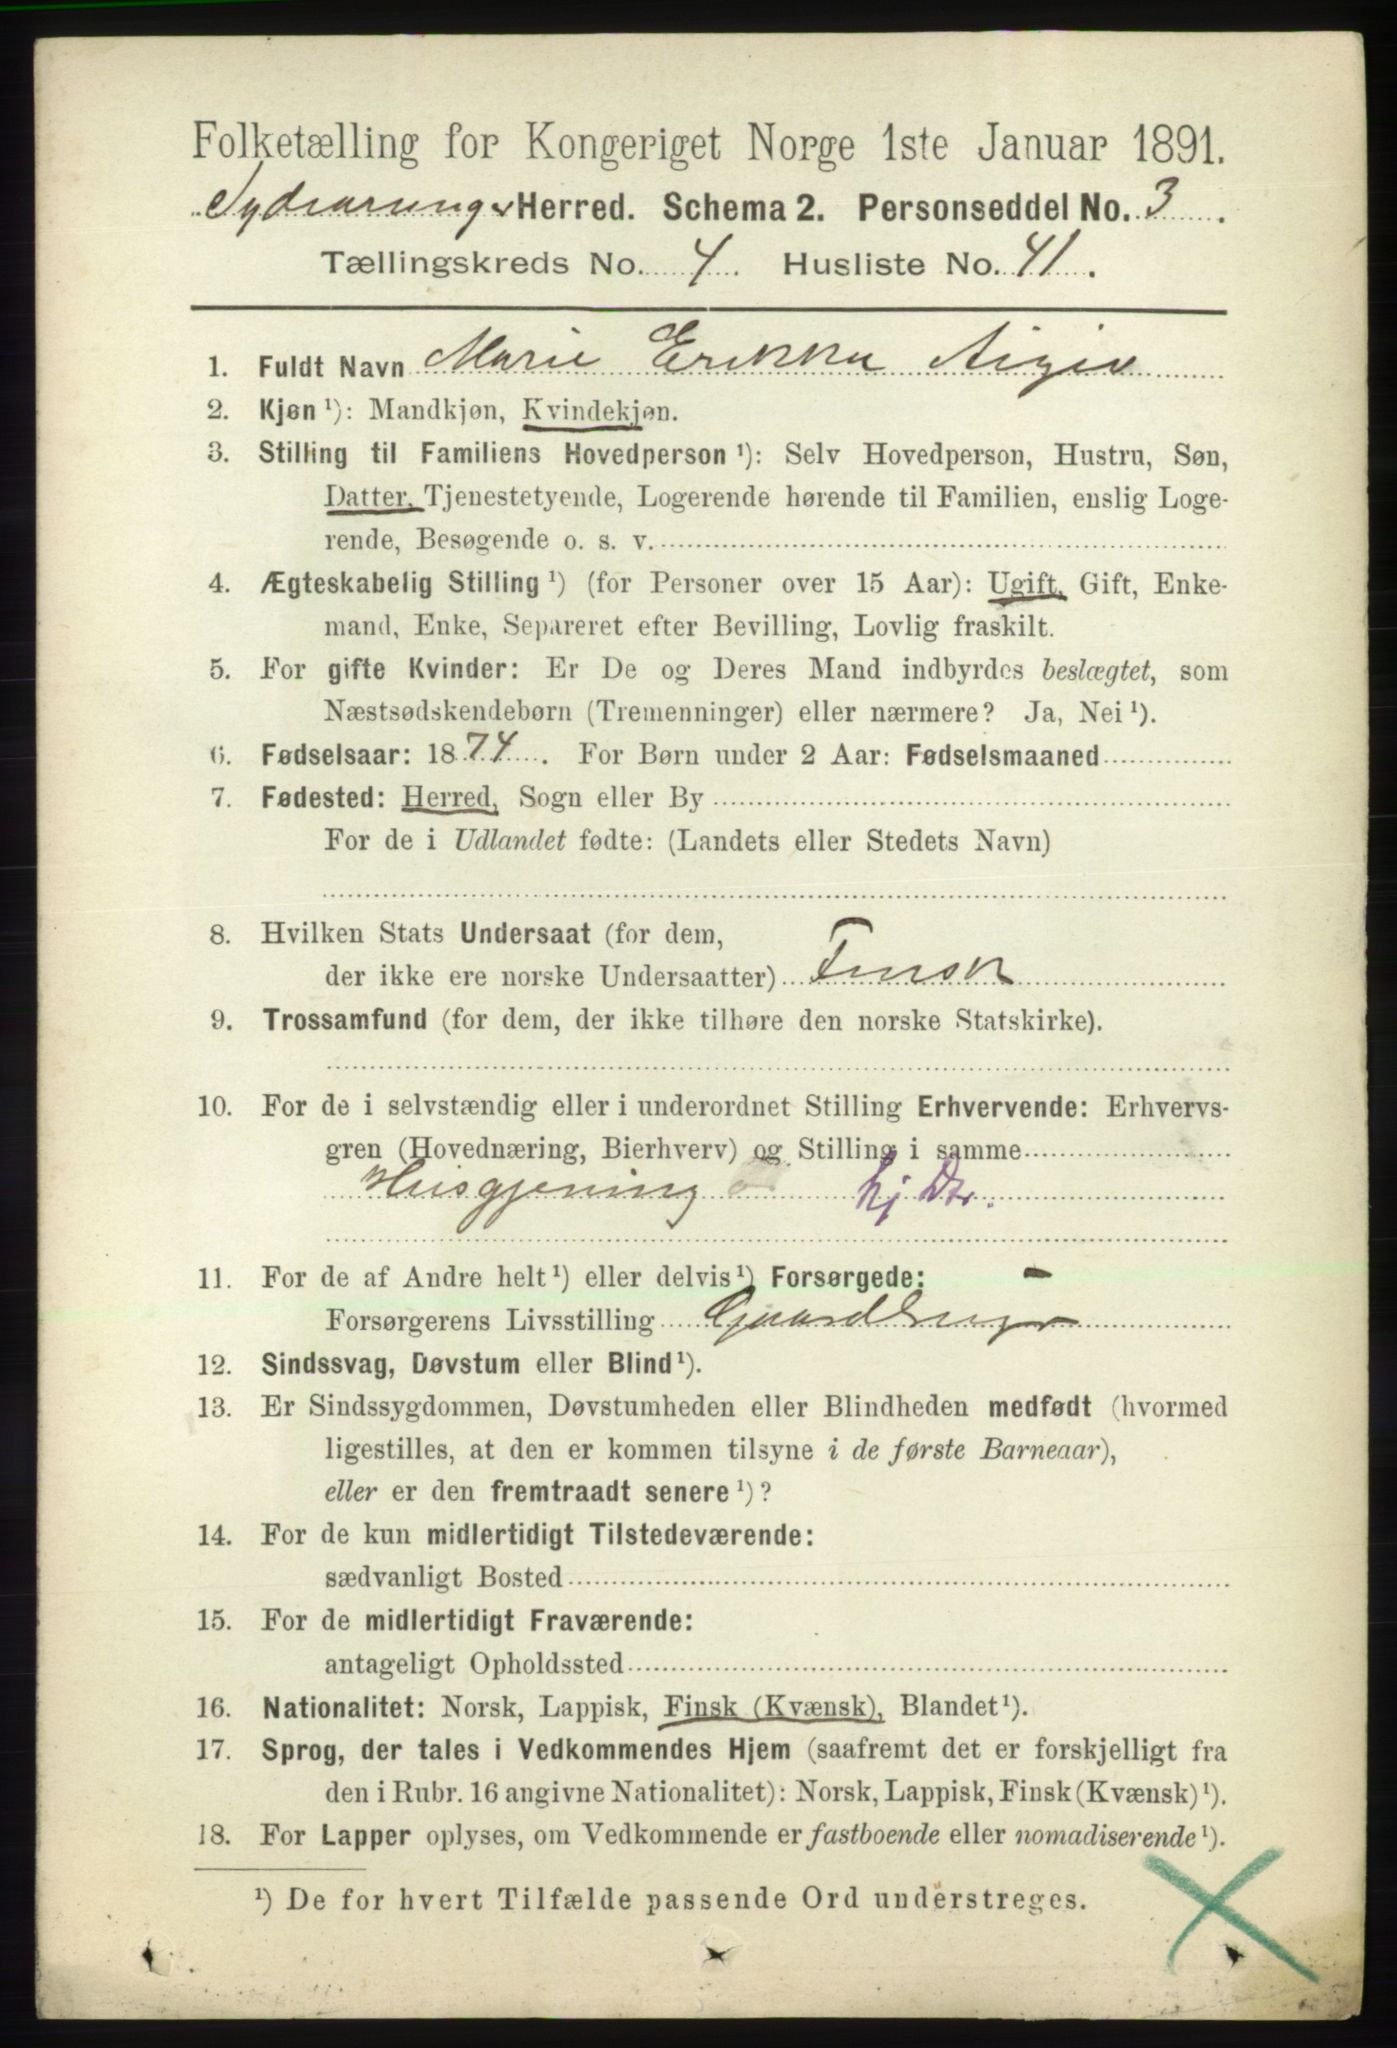 Folketælling for Kongeriget Norge 1ste Januar 1891.
Sydvaranger Herred. Schema 2. Personseddel No. 3.
Tællingskreds No. 4. Husliste No. 41.
1. Fuldt Navn Marie Erikka
2. Kjøn ¹): Mandkjøn, Kvindekjøn.
3. Stilling til Familiens Hovedperson ¹): Selv Hovedperson, Hustru, Søn,
Datter, Tjenestetyende, Logerende hørende til Familien, enslig Loge-
rende, Besøgende o. s. v.
4. Ægteskabelig Stilling ¹) (for Personer over 15 Aar): Ugift, Gift, Enke-
mand, Enke, Separeret efter Bevilling, Lovlig fraskilt.
5. For gifte Kvinder: Er De og Deres Mand indbyrdes beslægtet, som
Næstsødskendebørn (Tremenninger) eller nærmere? Ja, Nei ¹).
6. Fødselsaar: 1874. For Børn under 2 Aar: Fødselsmaaned
7. Fødested: Herred, Sogn eller By
For de i Udlandet fødte: (Landets eller Stedets Navn)
8. Hvilken Stats Undersaat (for dem,
der ikke ere norske Undersaatter) Finsk
9. Trossamfund (for dem, der ikke tilhøre den norske Statskirke).
10. For de i selvstændig eller i underordnet Stilling Erhvervende: Erhvervs-
gren (Hovednæring, Bierhverv) og Stilling i samme
Husgjerning hj Dtr.
11. For de af Andre helt ¹) eller delvis ¹) Forsørgede: -
Forsørgerens Livsstilling Gaardbruger
12. Sindssvag, Døvstum eller Blind ¹).
13. Er Sindssygdommen, Døvstumheden eller Blindheden medfødt (hvormed
ligestilles, at den er kommen tilsyne i de første Barneaar),
eller er den fremtraadt senere ¹)?
14. For de kun midlertidigt Tilstedeværende:
sædvanligt Bosted
15. For de midlertidigt Fraværende:
antageligt Opholdssted
16. Nationalitet: Norsk, Lappisk, Finsk (Kvænsk), Blandet ¹).
17. Sprog, der tales i Vedkommendes Hjem (saafremt det er forskjelligt fra
den i Rubr. 16 angivne Nationalitet): Norsk, Lappisk, Finsk (Kvænsk) ¹).
18. For Lapper oplyses, om Vedkommende er fastboende eller nomadiserende ¹).
¹) De for hvert Tilfælde passende Ord understreges.